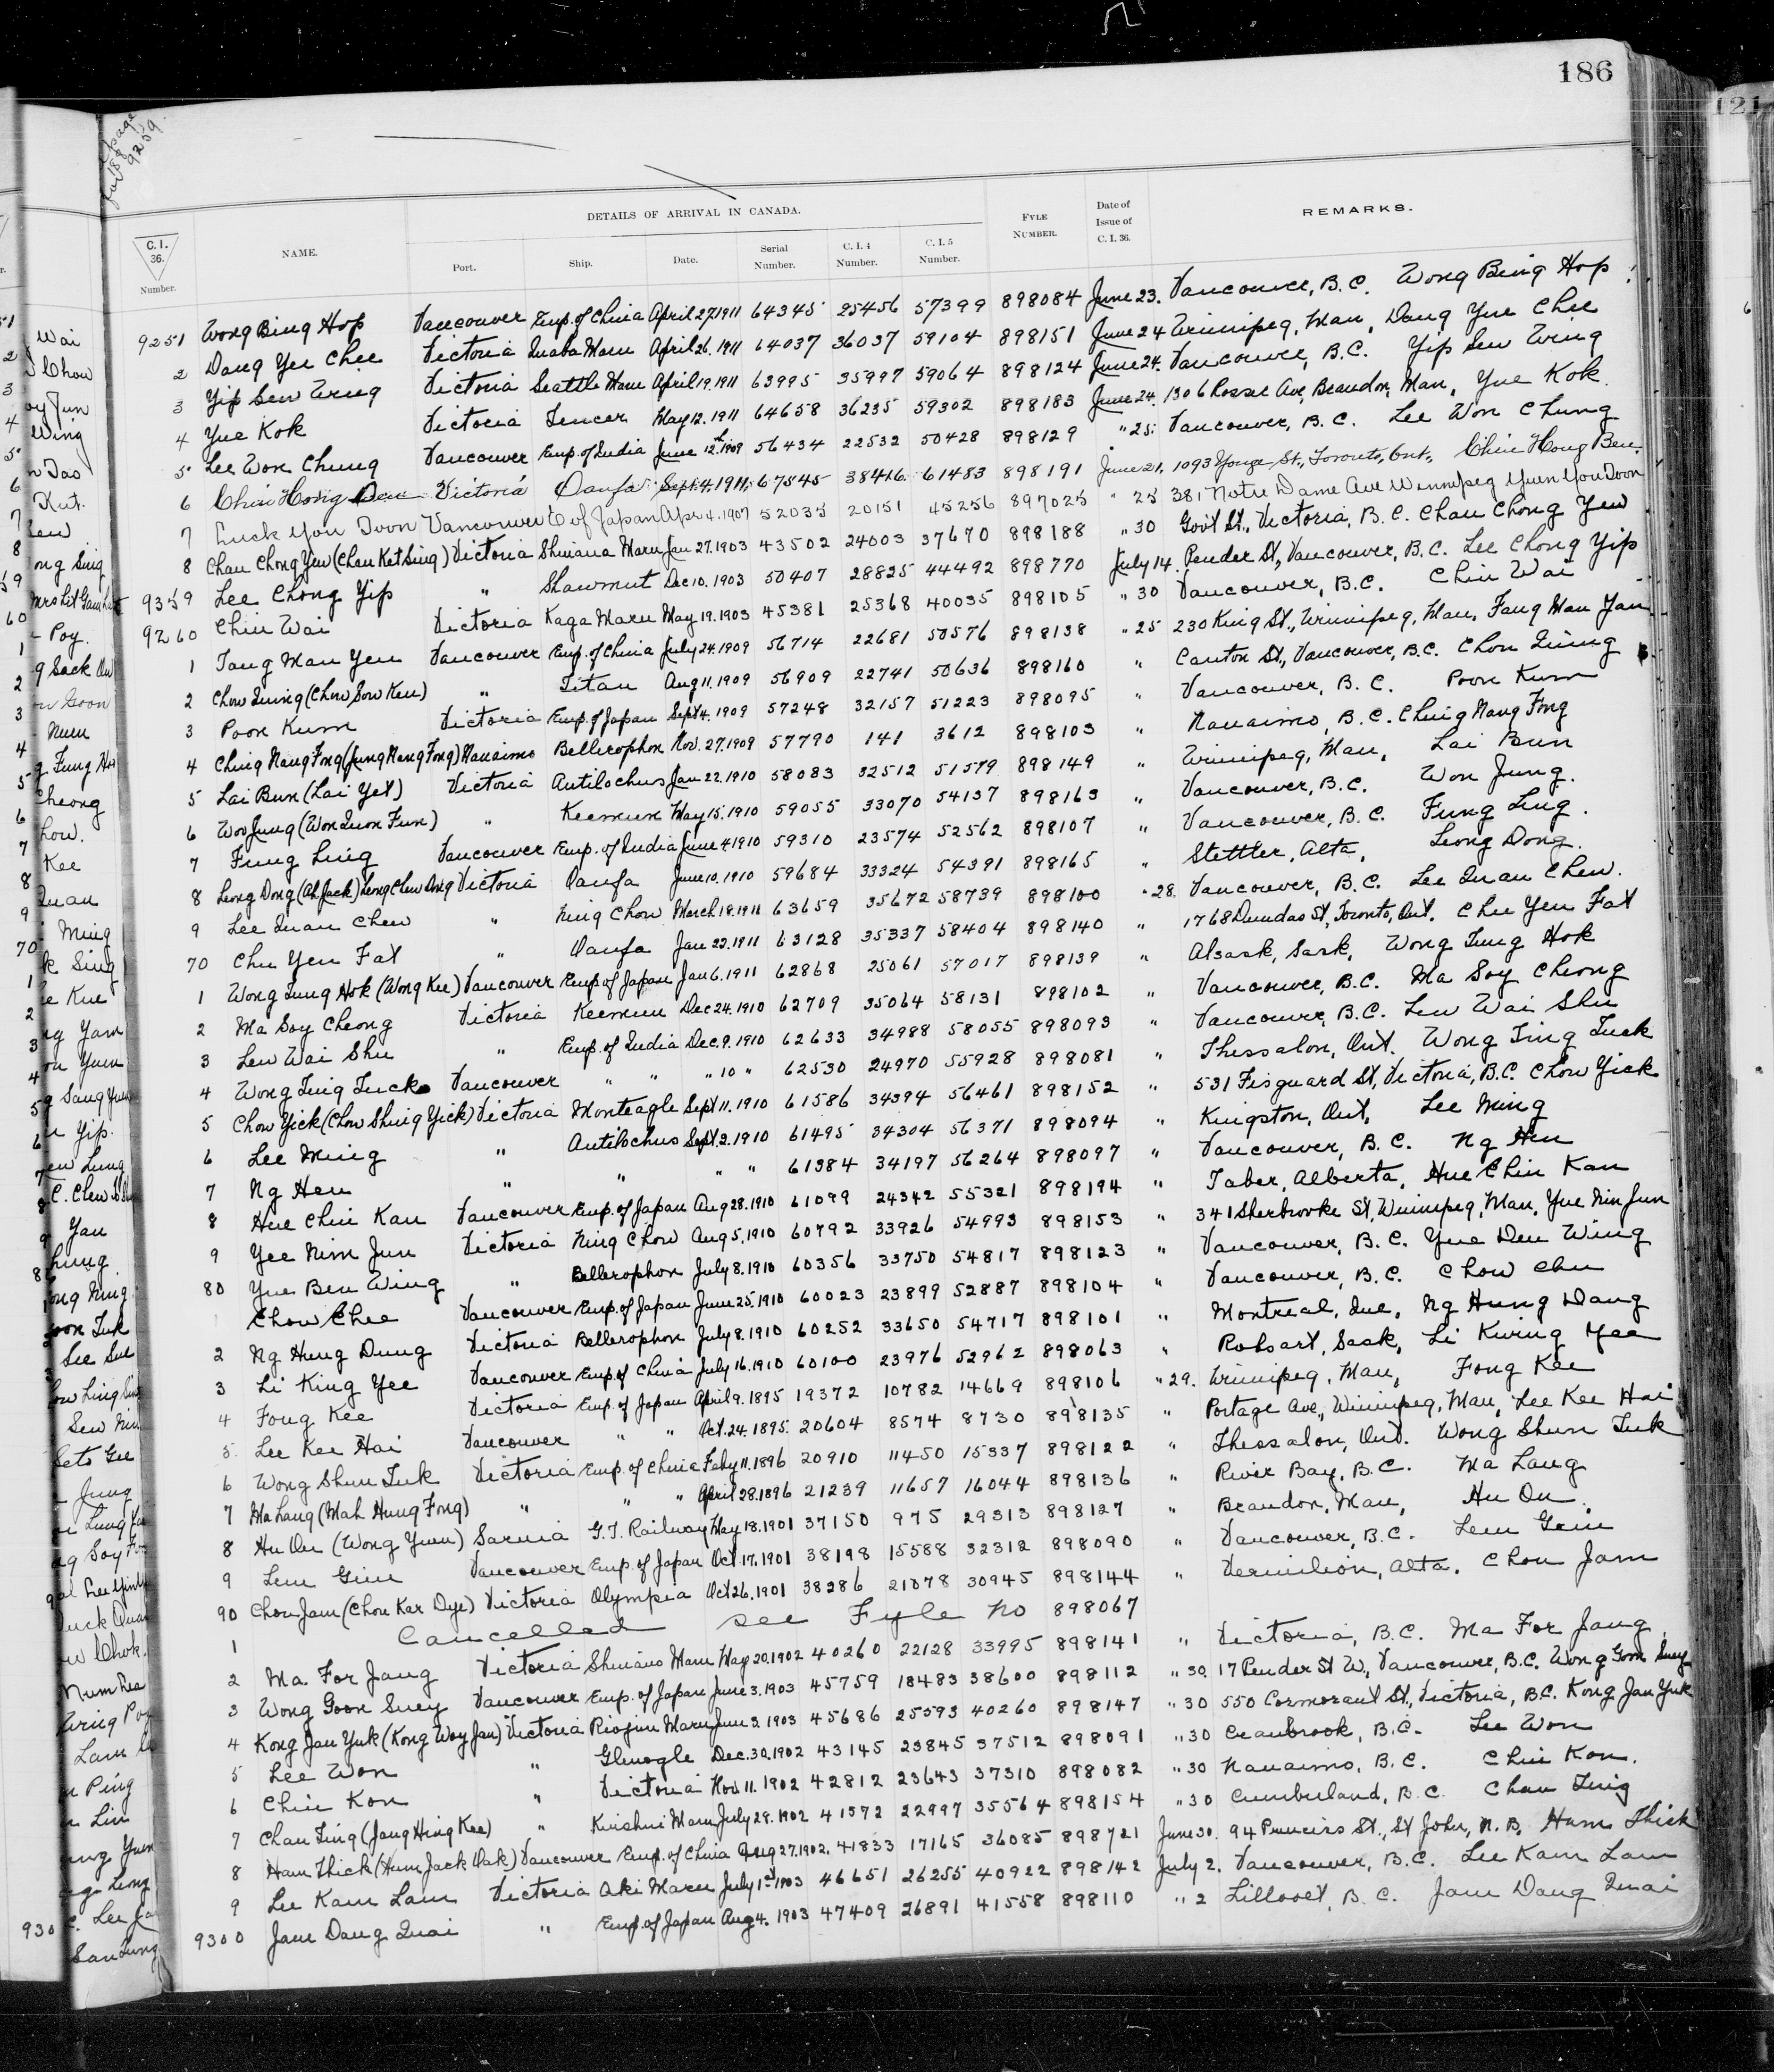 186
121
page
9259
DETAILS OF ARRIVAL IN CANADA.
C. I. 36. Number. NAME. Port. Ship. Date. Serial Number. C. I. 4 Number. C. I. 5 Number. FYLE NUMBER. Date of Issue of C. I. 36. REMARKS.
9251 Wong Bing Hop Vancouver Emp. of China April 27.1911 64345 25456 57399 898084 June 23. Vancouver, B.C. Wong Bing Hop
2 Dang Yee Chee Victoria Inaba Maru April 26.1911 64037 36037 59104 898151 June 24 Winnipeg, Man, Dang Yue Chee
3 Yip Sew Wing Victoria Seattle Maru April 19.1911 63995 35997 59064 898124 June 24. Vancouver, B.C. Yip Sew Wing
4 Yue Kok Victoria Teucer May 12.1911 64658 36235 59302 898183 June 24. 1306 Rosser Ave, Brandon, Man, Yue Kok.
5 Lee Won Chung Vancouver Emp. of India June 12th 1909 56434 22532 50428 898129 " 25. Vancouver, B.C. Lee Won Chung
6 Chin Hong Ben Victoria Oanfa Sept. 4.1911 67545 38416 61483 898191 June 21. 1093 Yonge St., Toronto, Ont., Chin Hong Ben.
7 Luck You Doon Vancouver E of Japan Apr 4.1907 52035 20151 45256 897025 " 25 381 Notre Dame Ave Winnipeg Yuen You Doon
8 Chan Chong Yew (Chan Kat Sing) Victoria Shinano Maru Jan 27.1903 43502 24003 37670 898188 " 30 Gov't St., Victoria, B.C. Chan Chong Yew
9359 Lee Chong Yip " Shawmut Dec 10.1903 50407 28825 44492 898770 July 14. Pender St., Vancouver, B.C. Lee Chong Yip
9260 Chin Wai Victoria Kaga Maru May 19.1903 45381 25368 40035 898105 " 30 Vancouver, B.C. Chin Wai
1 Tang Man Yen Vancouver Emp. of China July 24.1909 56714 22681 50576 898138 " 25 230 King St., Winnipeg, Man, Fang Man Yan
2 Chow Quing (Chow Sow Ken) " Titan Aug 11.1909 56909 22741 50636 898160 " Canton St., Vancouver, B.C. Chow Quing
3 Poon Kum Victoria Emp. of Japan Sept 4.1909 57248 32157 51223 898095 " Vancouver, B.C. Poon Kum
4 Ching Nang Fong (Jung Nang Fong) Nanaimo Bellerophon Nov. 27.1909 57790 141 3612 898103 " Nanaimo, B.C. Ching Nang Fong
5 Lai Bun (Lai Yet) Victoria Antilochus Jan 22.1910 58083 32512 51579 898149 " Winnipeg, Man, Lai Bun
6 Won Jung (Won Quon Fun) " Keemun May 15.1910 59055 33070 54137 898163 " Vancouver, B.C. Won Jung.
7 Fung Ling Vancouver Emp. of India June 4.1910 59310 23574 52562 898107 " Vancouver, B.C. Fung Ling.
8 Leong Dong (Ah Jack) Leong Chew Dong Victoria Oanfa June 10.1910 59684 33324 54391 898165 " Stettler, Alta, Leong Dong.
9 Lee Quan Chew " Ning Chow March 18.1911 63659 35672 58739 898100 " 28. Vancouver, B.C. Lee Quan Chew.
70 Chu Yen Fat " Oanfa Jan 23.1911 63128 35337 58404 898140 " 1768 Dundas St, Toronto, Ont. Chu Yen Fat
1 Wong Tung Hok (Wong Kee) Vancouver Emp. of Japan Jan 6.1911 62868 25061 57017 898139 " Alsask, Sask, Wong Tung Hok
2 Ma Soy Cheong Victoria Keemun Dec 24.1910 62709 35064 58131 898102 " Vancouver, B.C. Ma Soy Cheong
3 Lew Wai Shu " Emp. of India Dec. 9.1910 62633 34988 58055 898093 " Vancouver, B.C. Lew Wai Shu
4 Wong Ting Tuck Vancouver " " " 10 " 62530 24970 55928 898081 " Thessalon, Ont. Wong Ting Tuck
5 Chow Yick (Chow Shing Yick) Victoria Monteagle Sept 11.1910 61586 34394 56461 898152 " 531 Fisguard St, Victoria, B.C. Chow Yick
6 Lee Ming " Antilochus Sept. 2.1910 61495 34304 56371 898094 " Kingston, Ont, Lee Ming
7 Ng Hen " " " " 61384 34197 56264 898097 " Vancouver, B.C. Ng Hen
8 Hue Chin Kan Vancouver Emp. of Japan Aug 28.1910 61099 24342 55321 898194 " Taber, Alberta, Hue Chin Kan
9 Yee Nim Jun Victoria Ning Chow Aug 5.1910 60792 33926 54993 898153 " 341 Sherbrooke St, Winnipeg, Man, Yue Nim Jun
80 Yue Ben Wing " Bellerophon July 8.1910 60356 33750 54817 898123 " Vancouver, B.C. Yue Den Wing
Chow Chee Vancouver Emp. of Japan June 25.1910 60023 23899 52887 898104 " Vancouver, B.C. Chow Chu
2 Ng Hung Dung Victoria Bellerophon July 8.1910 60252 33650 54717 898101 " Montreal, Que, Ng Hung Dang
3 Li King Yee Vancouver Emp. of China July 16.1910 60100 23976 52962 898063 " Robsart, Sask, Li Kwing Yee
4 Fong Kee Victoria Emp. of Japan April 9.1895 19372 10782 14669 898106 " 29. Winnipeg, Man, Fong Kee
5 Lee Kee Hai Vancouver " " Oct. 24.1895. 20604 8574 8730 898135 " Portage Ave., Winnipeg, Man, Lee Kee Hai
6 Wong Shun Tuk Victoria Emp. of China Feby 11.1896 20910 11450 15337 898122 " Thessalon, Ont. Wong Shun Tuk
7 Ma Lang (Mah Hung Fong) " " " April 28.1896 21239 11657 16044 898136 " River Bay, B.C. Ma Lang
8 Hu On (Wong Yuen) Sarnia G.T. Railway May 18.1901 37150 975 29313 898127 " Brandon, Man, Hu On.
9 Lem Gim Vancouver Emp. of Japan Oct. 17.1901 38198 15588 32312 898090 " Vancouver, B.C. Lem Gim
90 Chou Jam (Chou Kar Dye) Victoria Olympia Oct 26.1901 38286 21078 30945 898144 " Vermilion, Alta. Chou Jam
1 Cancelled see Fyle No 898067
2 Ma For Jang Victoria Shinano Maru May 20.1902 40260 22128 33995 898141 " Victoria, B.C. Ma For Jang
3 Wong Goon Suey Vancouver Emp. of Japan June 3.1903 45759 18483 38600 898112 " 30. 17 Pender St W., Vancouver, B.C. Wong Goon Suey
4 Kong Jan Yuk (Kong Woy Jan) Victoria Riojun Maru June 3.1903 45686 25593 40260 898147 " 30 550 Cormorant St, Victoria, B.C. Kong Jan Yuk
5 Lee Won " Glenogle Dec. 30.1902 43145 23845 37512 898091 " 30 Cranbrook, B.C. Lee Won
6 Chin Kon " Victoria Nov. 11.1902 42812 23643 37310 898082 " 30 Nanaimo, B.C. Chin Kon.
7 Chan Ting (Jang Hing Kee) " Kinshiu Maru July 28.1902 41572 22997 35564 898154 " 30 Cumberland, B.C. Chan Ting
8 Ham Thick (Hum Jack Oak) Vancouver Emp. of China Aug 27.1902. 41833 17165 36085 898721 June 30. 94 Princess St., St John, N.B. Hum Thick
9 Lee Kam Lam Victoria Aki Maru July 1st 1903 46651 26255 40922 898142 July 2. Vancouver, B.C. Lee Kam Lam
9300 Jam Dang Quai " Emp. of Japan Aug 4.1903 47409 26891 41558 898110 " 2 Lillooet, B.C. Jam Dang Quai